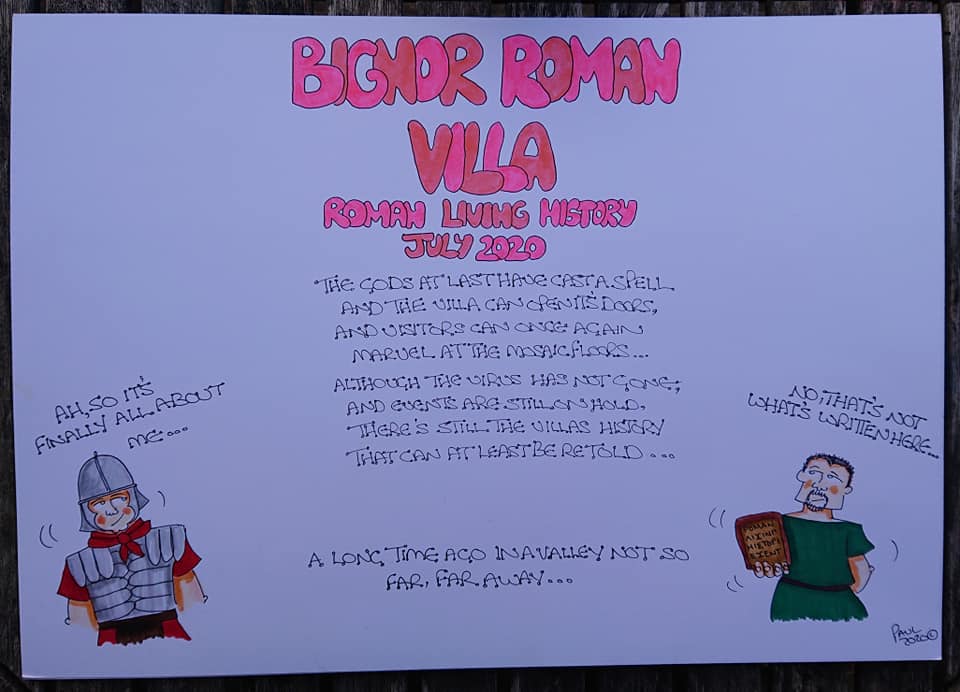 BIGNOR ROMAN
VILLA
ROMAN LIVING HISTORY
JULY 2020
THE GODS AT LAST HAVE CAST A SPELL
AND THE VILLA CAN OPEN IT'S DOORS,
AND VISITORS CAN ONCE AGAIN
MARVEL AT THE MOSAIC FLOORS...
ALTHOUGH THE VIRUS HAS NOT GONE,
AND EVENTS ARE STILL ON HOLD,
THERE'S STILL THE VILLAS HISTORY
THAT CAN AT LEAST BE RETOLD...
AH, SO IT'S
FINALLY ALL ABOUT
ME...
NO, THAT'S NOT
WHAT'S WRITTEN HERE...
ROMAN
LIVING
HISTORY
EVENT
A LONG TIME AGO IN A VALLEY NOT SO
FAR, FAR AWAY...
PAUL
2020©